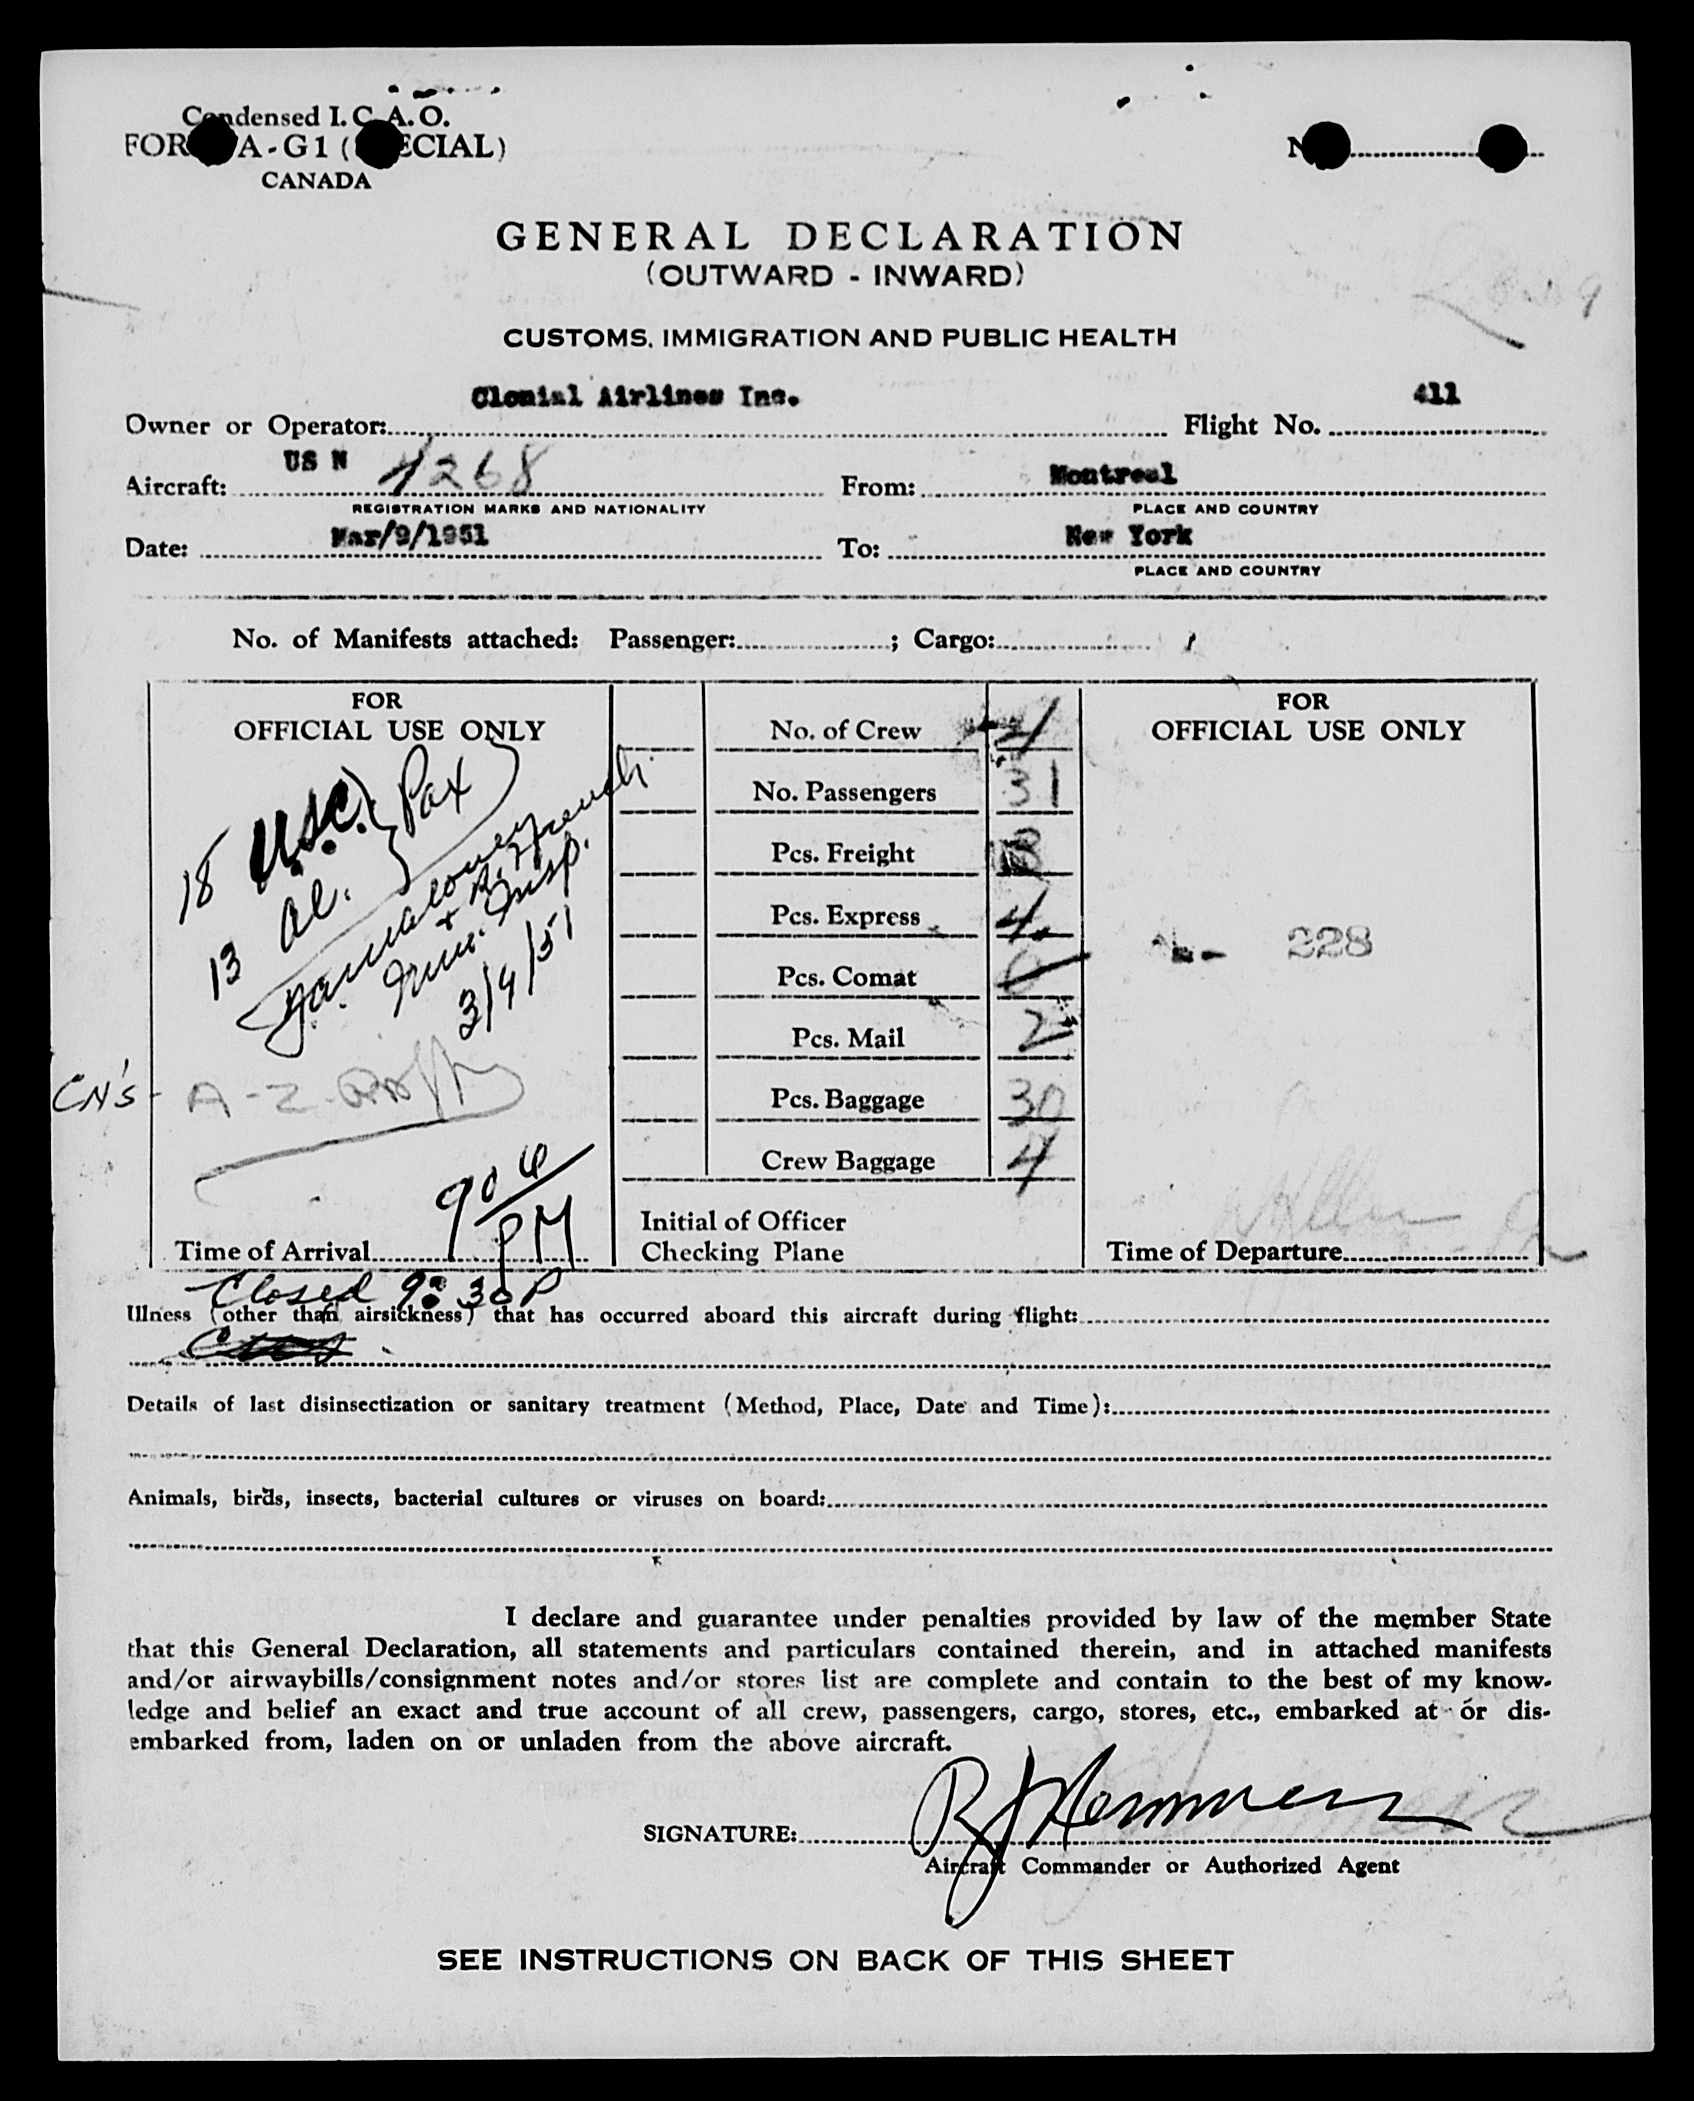 Condensed I. C. A. O.
FOR A - G 1 ( ECIAL)
CANADA
N
GENERAL DECLARATION
(OUTWARD - INWARD)
CUSTOMS, IMMIGRATION AND PUBLIC HEALTH
Clonial Airlines Inc. 411
Owner or Operator: Flight No.
US N 4268 Montreal
Aircraft: From:
REGISTRATION MARKS AND NATIONALITY PLACE AND COUNTRY
Mar/9/1951 New York
Date: To:
PLACE AND COUNTRY
No. of Manifests attached: Passenger: ; Cargo:
FOR
OFFICIAL USE ONLY
18 U.S.C. } Pax
13 al.
Imm. Insp.
3/9/51
CN's - A-Z
906
PM
Time of Arrival
No. of Crew 4
No. Passengers 31
Pcs. Freight 13
Pcs. Express 4
Pcs. Comat 0
Pcs. Mail 2
Pcs. Baggage 30
Crew Baggage 4
Initial of Officer
Checking Plane
FOR
OFFICIAL USE ONLY
228
Time of Departure
Closed 9:30 P
Illness (other than airsickness) that has occurred aboard this aircraft during flight:
Details of last disinsectization or sanitary treatment (Method, Place, Date and Time):
Animals, birds, insects, bacterial cultures or viruses on board:
I declare and guarantee under penalties provided by law of the member State
that this General Declaration, all statements and particulars contained therein, and in attached manifests
and/or airwaybills/consignment notes and/or stores list are complete and contain to the best of my know-
ledge and belief an exact and true account of all crew, passengers, cargo, stores, etc., embarked at or dis-
embarked from, laden on or unladen from the above aircraft.
SIGNATURE:
Aircraft Commander or Authorized Agent
SEE INSTRUCTIONS ON BACK OF THIS SHEET